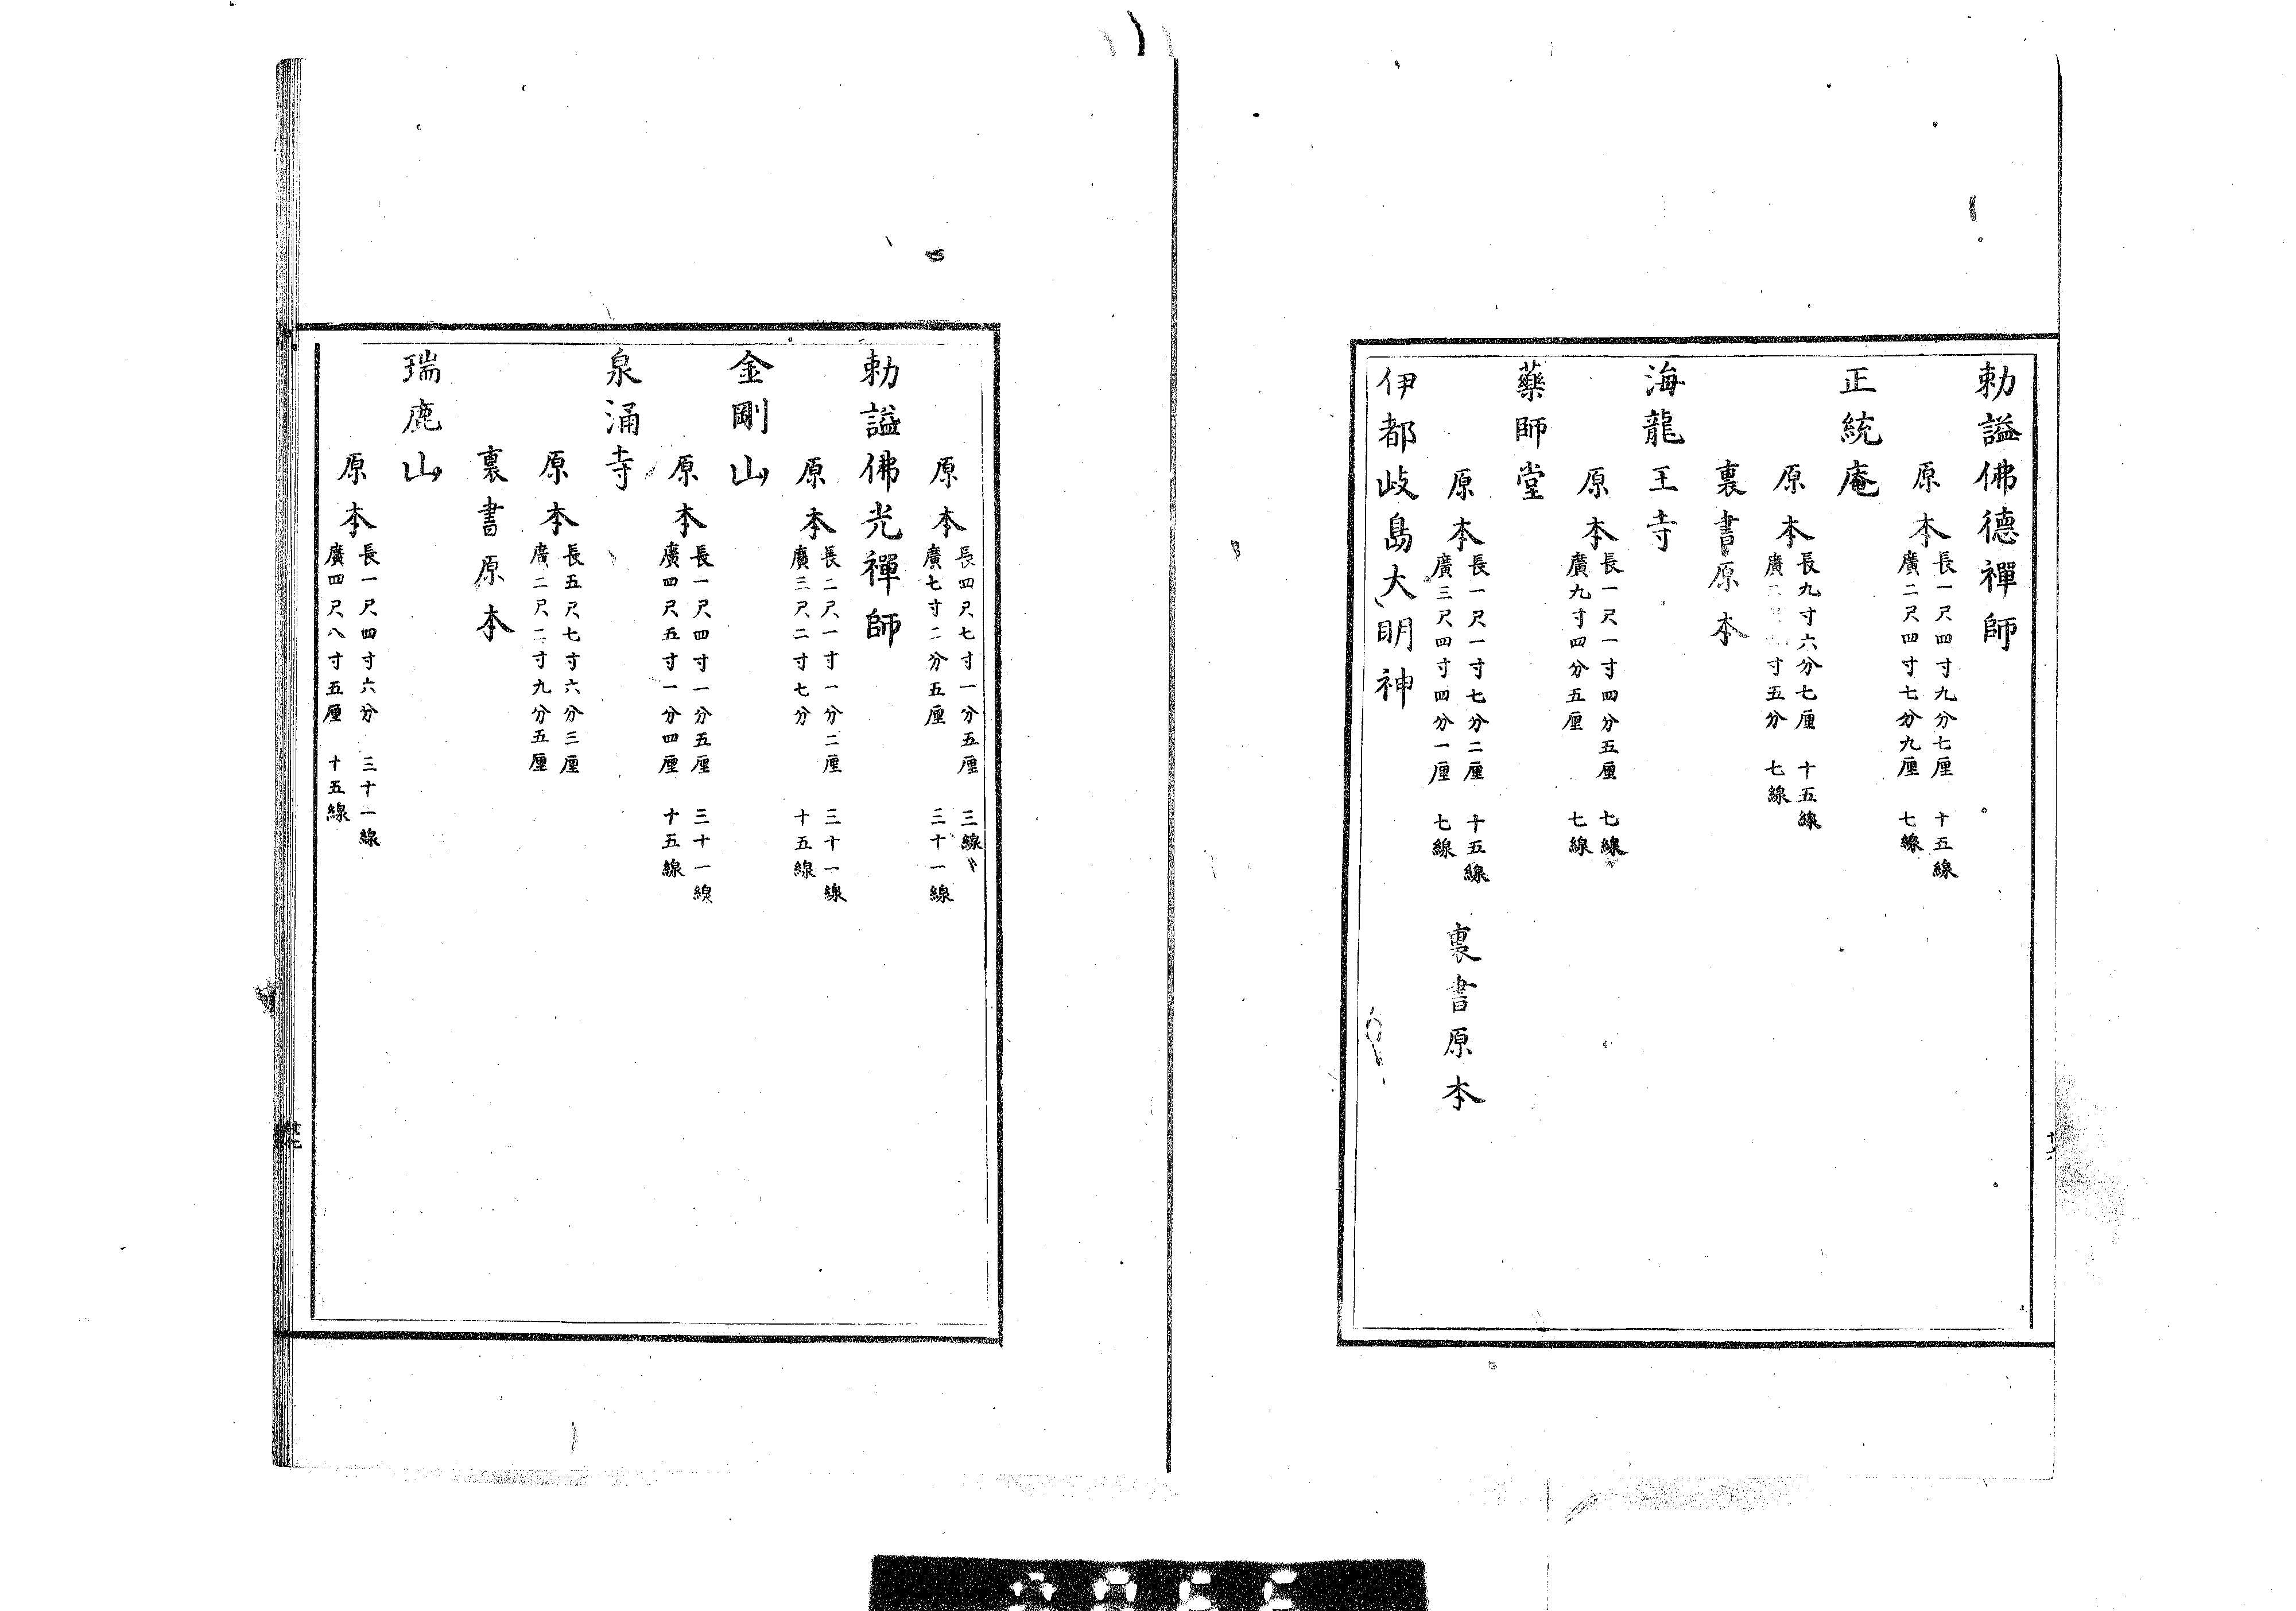 勅謚佛德禪師
原本
長一尺四寸九分七厘 十五線
廣二尺四寸七分九厘 七線
正統庵
原本
長九寸六分七厘 十五線
廣 寸五分 七線
裏書原本
海龍王寺
原本
長一尺一寸四分五厘 七線
廣九寸四分五厘 七線
藥師堂
原本
長一尺一寸七分二厘 十五線
廣三尺四寸四分一厘 七線
裏書原本
伊都岐島大明神
原本
長四尺七寸一分五厘 三線
廣七寸二分五厘 三十一線
勅謚佛光禪師
原本
長二尺一寸一分二厘 三十一線
廣三尺二寸七分 十五線
金剛山
原本
長一尺四寸一分五厘 三十一線
廣四尺五寸一分四厘 十五線
泉涌寺
原本
長五尺七寸六分三厘
廣二尺二寸九分五厘
裏書原本
瑞鹿山
原本
長一尺四寸六分 三十一線
廣四尺八寸五厘 十五線